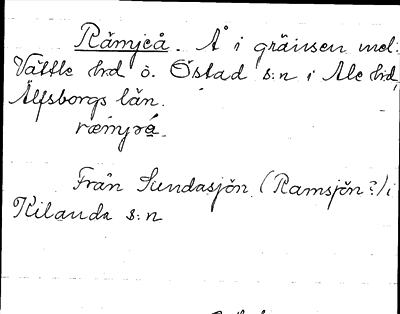 Rämjeå. Å i gränsen mel:
Vättle hrd o. Östad s:n i Ale hrd,
Älfsborgs län.
Från Sundasjön (Ramsjön?) i
Kilanda s:n